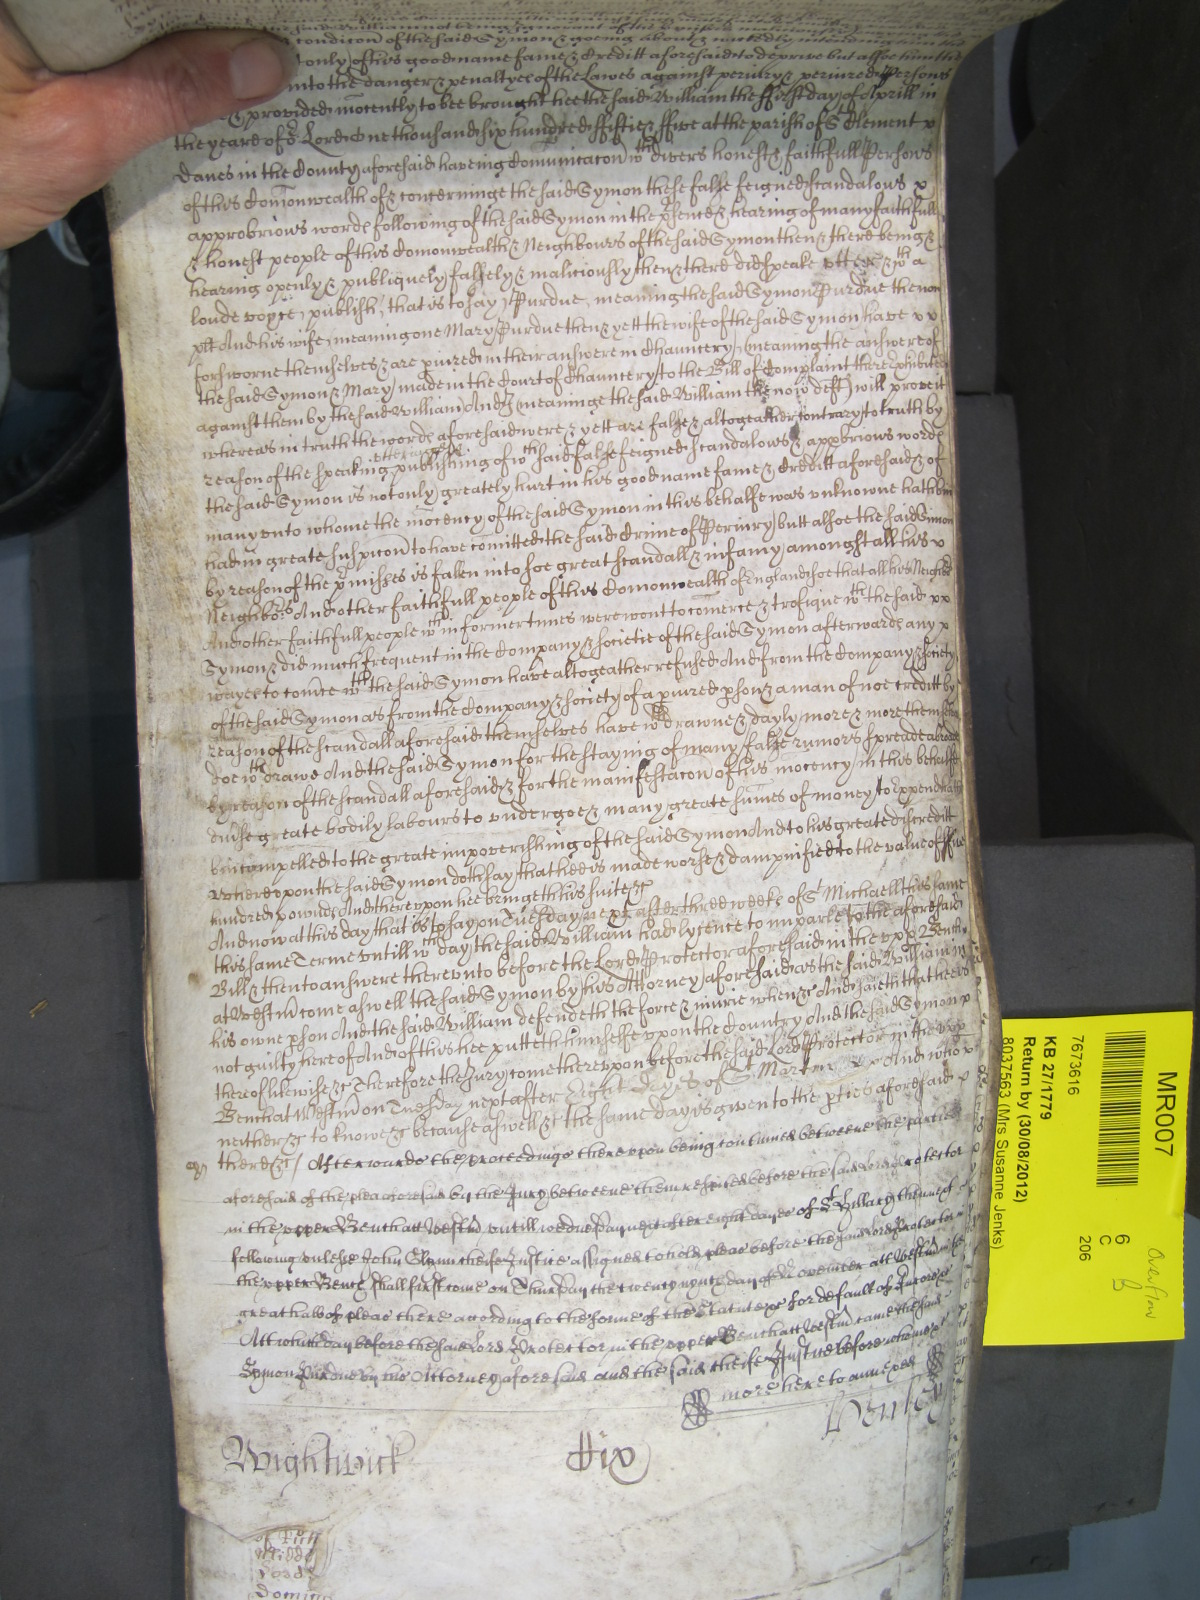 condicon of the said Symon & goeing about & wickedly intending him the
only of his good name fame & Creditt aforesaid to deprive but alsoe him the
into the danger & penaltyes of the Lawes against periury & periured Persons
& provided inocently to bee brought hee the said William the ffirst day of Aprill in
the yeare of or Lord one thousand six hundred ffiftie & ffive at the parish of St Clement
Danes in the County aforesaid haveing Comunicacon wth divers honest & faithfull Persons
of this Comonwealth of & concerninge the said Symon these false feigned scandalous
approbrious words following of the said Symon in the psence & hearing of many faithfull
& honest people of this Comonwealth & Neighbours of the said Symon then & there being &
hearing openly & publiquely falsely & maliciously then & there did speake utter & wth a
loude voyce publish, that is to say, Purdue, meaning the said Symon Purdue the now
plt And his wife, meaning one Mary Purdue then & yett the wife of the said Symon have
forsworne themselves & are piured in their answere in Chauncery, (meaning the answere of
the said Symon & Mary made in the Court of Chauncery to the Bill of Complaint there exhibited
against them by the said William) And I (meaninge the said William the now deft) will prove it
whereas in truth the words aforesaid were & yett are false & altogeather contrary to truth by
reason of the speaking uttering & publishing of wch said false feigned scandalous & approbrious words
the said Symon is not only greately hurt in his good name fame & Creditt aforesaid & of
many unto whome the inocency of the said Symon in this behalfe was unknowne hath bin
had in great suspicon to have comitted the said Crime of Periury but alsoe the said Simon
by reason of the pmisses is fallen into soe great scandall & infamy amongst all his
Neighbors And other faithfull people of this Comonwealth of England soe that all his Neighbors
And other faithfull people wch in former times were wont to comerce & trafique wth the said
Symon & did much frequent in the Company & societie of the said Symon afterwards any
wayes to comce wth the said Symon have altogeather refused And from the Company & society
of the said Symon as from the Company & society of a piured pson & a man of noe creditt by
reason of the scandall aforesaid themselves have wthdrawne & dayly more & more themselves
doe wthdrawe And the said Symon for the staying of many false rumors spreade abroade
by reason of the scandall aforesaid & for the manifestacon of his inocency in this behalfe
divse greate bodily labours to undergoe & many great sumes of money to expend hath
bin compelled to the great impoverishing of the said Symon And to his great discreditt
Whereupon the said Symon doth say that hee is made worse & dampnified to the value of ffive
hundred pounds And thereupon hee bringeth his suite &c
And now at this day that is to say on Tuesday next after three weeks of St Michaell this same
this same Terme untill wch day the said William had lycence to imparle to the aforesaid
Bill & then to answere thereunto before the Lord Protector aforesaid in the upp Bench
at Westm come aswell the said Symon by his Attorney aforesaid as the said William in
his owne pson And the said William defendeth the force & iniurie when &c And saieth that hee is
not guilty hereof And of this hee putteth himselfe upon the Country And the said Symon
thereof likewise &c Therefore the Jury come thereupon before the said Lord Protector in the upp
Bench at Westm on Tuesday next after Eight dayes of St Martin And who
neither &c to knowe &c because aswell &c the same day is given to the pties aforesaid
there &c / Afterwards the proceedings thereupon being continued betweene the parties
aforesaid of the plea aforesaid by the Jury betweene them respited before the said Lord Protector
in the upper Bench att Westm untill wednesday next after eight dayes of St Hillary then next
following unlesse John Glynn cheife Justice assigned to hold pleas before the said Lord Protector in
the upper Bench shall first come on Thursday the twenty nynth day of November att Westm in the
great hall of pleas there according to the forme of the Statute &c for default of Jurors &c
Att which day before the said Lord Protector in the upper Bench att Westm came the said
Symon Purdue by his Attorney aforesaid and the said cheife Justice before whome &c
more hereto annexed
Henley
Wightwick
ffix
MR007
6
C
206
Overflow
B
7673616
KB 27/1779
Return by (30/08/2012)
8037563 (Mrs Susanne Jenks)